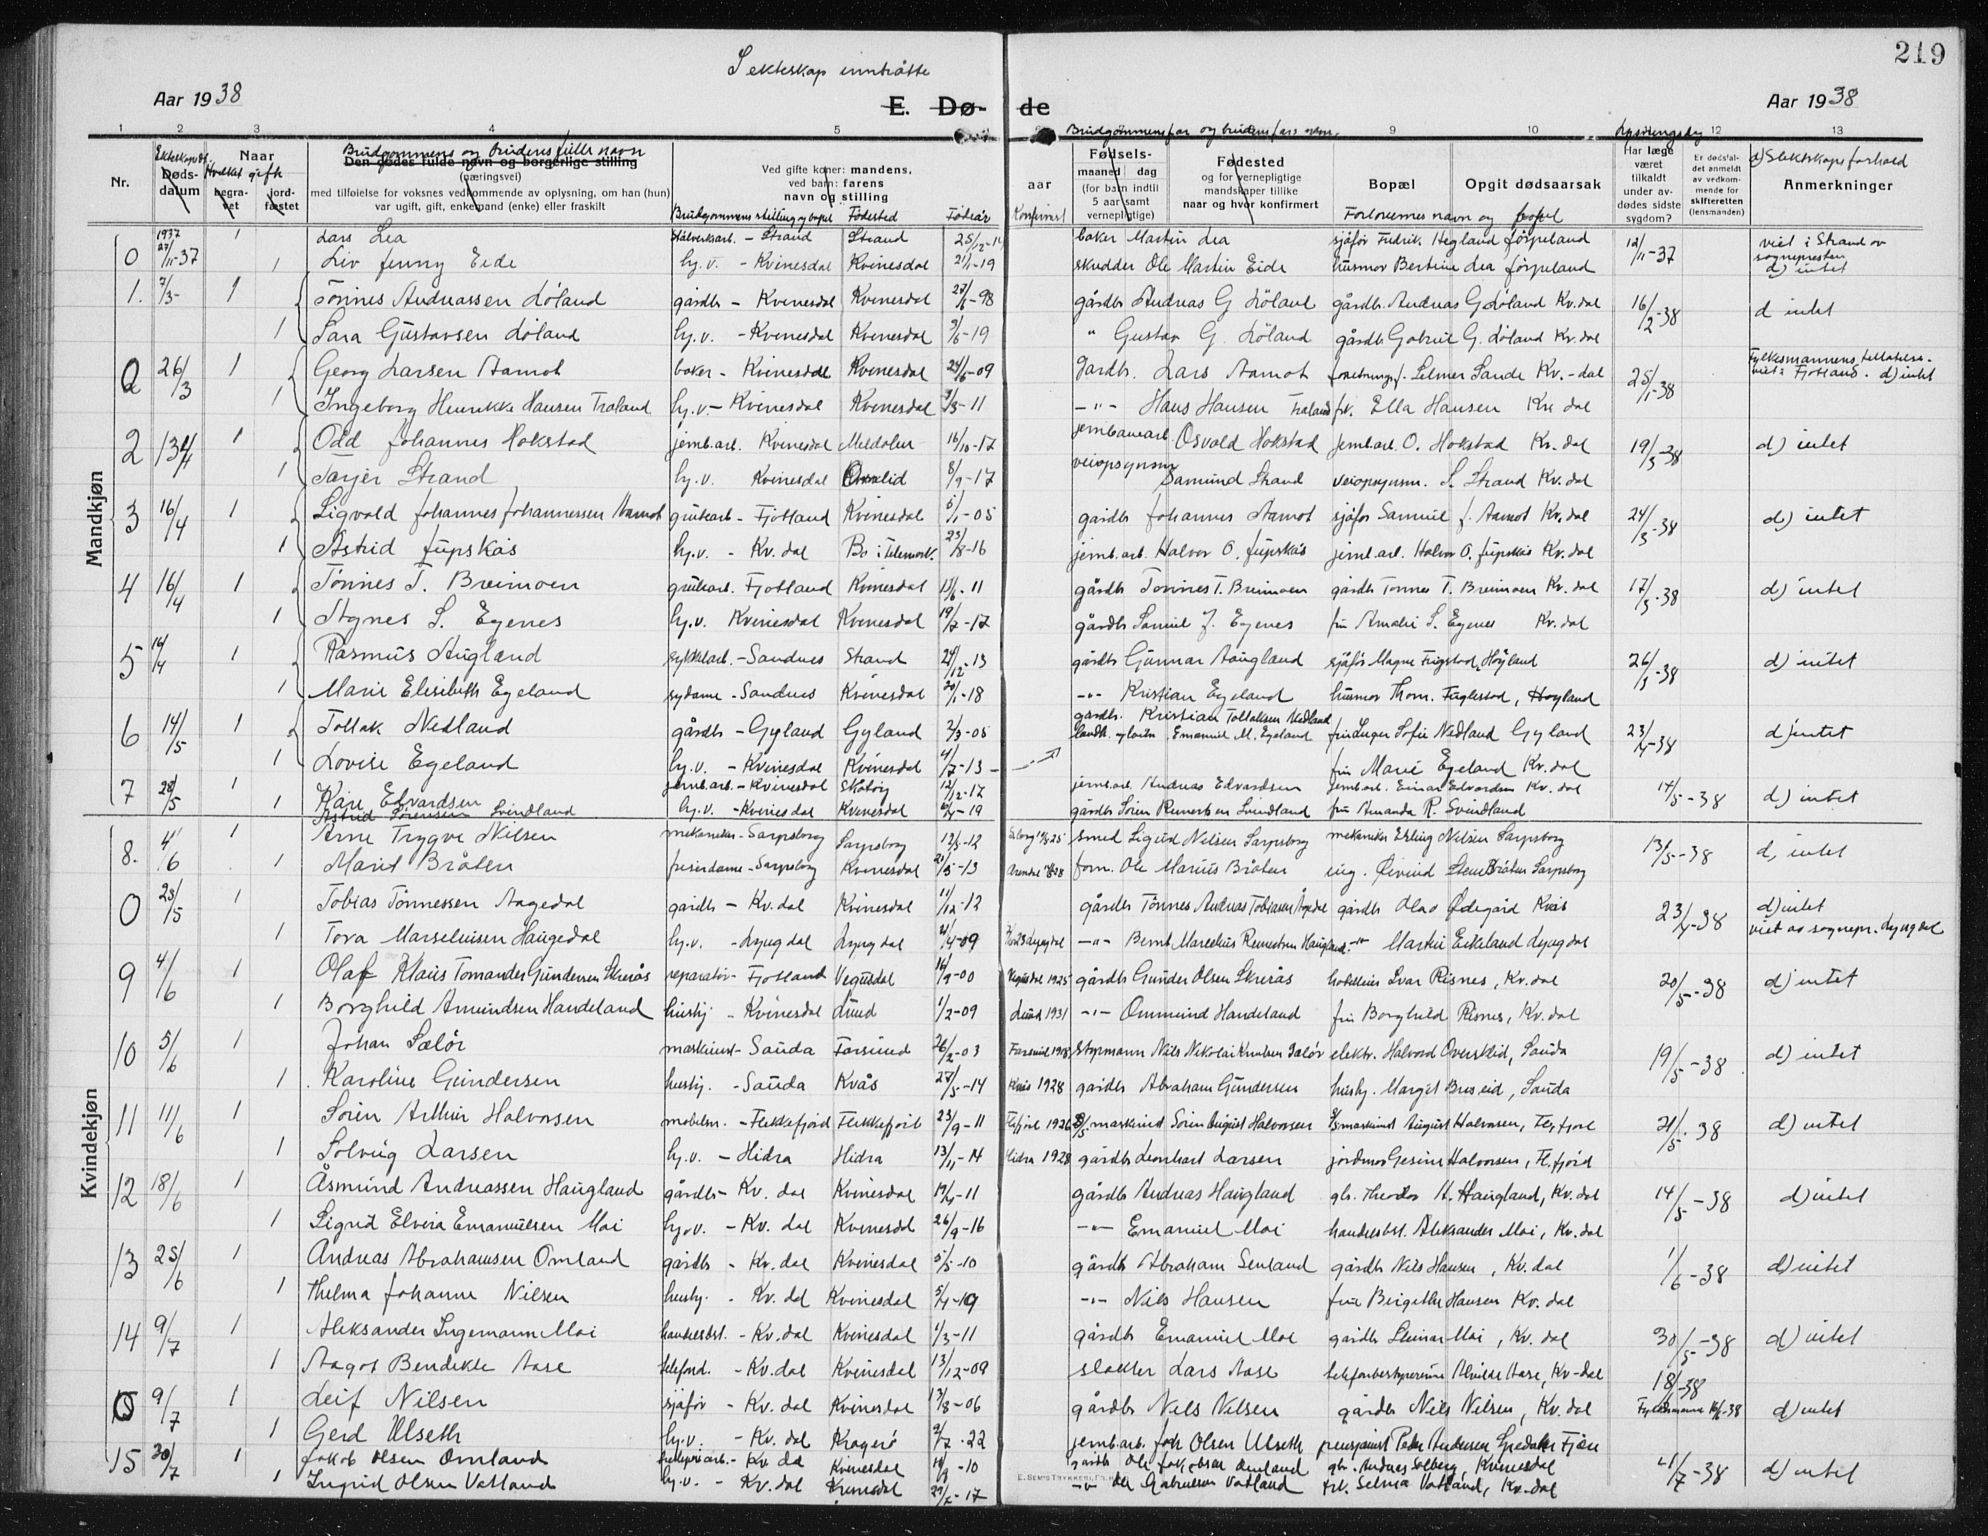 219
I ekteskap inntrådte
Aar 1938 E. Dø- de Aar 1938
1 2 3 4 5 9 10 12 13
Brudgommens far og brudens fars navn. Lysningsdag
Nr. Dødsdatum Naar begravet jordfæstet
Hvilket gifte
Brudgommens og brudens fulle navn
Den dødes fulde navn og borgerlige stilling
(næringsvei)
med tilføielse for voksnes vedkommende av oplysning, om han (hun)
var ugift, gift, enkemand (enke) eller fraskilt
Ved gifte koner: mandens,
ved barn: farens
navn og stilling
Brudgommens stilling og bopel Fødested Fødselsår
aar Konfirmert
Fødselsmaaned dag
(for barn indtil
5 aar samt
vernepligtige)
Fødested
og for vernepligtige
mandskaper tillike
naar og hvor konfirmert
Bopæl Opgit dødsaarsak
Forlovernes navn og bopel
Har læge været tilkaldt under avdødes sidste sygdom?
Er dødsfaldet anmeldt av vedkommende for skifteretten (lensmanden)
d) Slektskapsforhold
Anmerkninger
Mandkjøn
0 1937 27/11-37 1 Lars Lea stålverksarb. - Strand Strand baker Martin Lea sjåfør Fredrik Hegland Jørpeland 12/11-37 viet i Strand av sognepresten
1 Liv Jenny Eide hj.v. - Kvinesdal Kvinesdal 21/1-19 skredder Ole Martin Eide husmor Bertine Lea Jørpeland d) intet
1. 7/3- 1 Tønnes Andreassen Løland gårdbr - Kvinesdal Kvinesdal 27/6-98 gårdbr Andreas G Løland gårdbr. Andreas G Løland Kv.dal 16/2-38 d intet
1 Sara Gustavsen Løland hj.v. - Kvinesdal Kvinesdal 9/6-19 " Gustav G. Løland gårdbr Gabriel G. Løland Kv.dal
0 26/3 1 Georg Larsen Aamot baker - Kvinesdal Kvinesdal 24/6-09 Gardbr. Lars Aamot forretningsf. Selmer Sande Kv.-dal 25/1-38 Fylkesmannens tillatelse. viet i Fjotland. d) intet
1 Ingeborg Henrikke Hansen Træland hj.v. - Kvinesdal Kvinesdal 9/3-11 -"- Hans Hansen Træland frk. Ella Hansen Kv. dal
2 13/4 1 Odd Johannes Hokstad jernb.arb. Kvinesdal Meldalen 16/10-17 jernbanearb. Osvald Hokstad jernb.arb. O. Hokstad Kv. dal 19/3-38 d) intet
1 Tarjer Strand hj.v. Kvinesdal Omlid 8/9-17 veiopsynsm Samund Strand veiopsynsm. S. Strand Kv.dal
3 16/4 1 Sigvald Johannes Johannessen Aamot grubearb - Fjotland Kvinesdal 5/1-05 gårdbr Johannes Aamot sjåfør Samuel J. Aamot Kv.dal 24/3-38 d) intet
1 Astrid Jupskås hj.v. - Kv. dal Bø i Telemark. 23/8-16 jernb.arb. Halvor O. Jupskås jernb.arb. Halvor O. Jupskås Kv.dal
4 16/4 1 Tønnes T. Breimoen grubearb. Fjotland Kvinesdal 13/6-11 gårdbr Tønnes T. Breimoen gårdbr Tønnes T. Breimoen Kv. dal 17/3-38 d) intet
1 Agnes S. Egenes hj.v. Kvinesdal Kvinesdal 19/7-17 gårdbr Samuel J. Egenes fru Amalie S. Egenes Kv.dal
5 16/4 1 Rasmus Augland sykkelarb. - Sandnes Strand 29/12-13 gårdbr Gunnar Aaugland sjåfør Magne Fuglestad, Høyland 26/3-38 d) intet
1 Marie Elisibeth Egeland sydame - Sandnes Kvinesdal 20/1-18 -"- Kristian Egeland husmor Thom. Faglestad, Høyland
6 14/5 1 Tollak Nedland gårdbr - Gyland Gyland 2/3-05 gårdbr. Kristian Tollaksen Nedland fru Inger Sofie Nedland Gyland 23/4-38 d) intet
1 Lovise Egeland hj.v. - Kvinesdal Kvinesdal 4/7-13 Emanuel M. Egeland fru Marie Egeland Kv. dal
7 28/5 1 Kåre Edvardsen jernb.arb. - Kvinesdal Skotøy 12/12-17 jernb.arb. Andreas Edvardsen jernb.arb. Einar Edvardsen Kv. dal 14/5-38 d) intet
1 Astrid Sørensen Svindland hj.v. - Kvinesdal Kvinesdal 4-19 gårdbr Søren Reinertsen Svindland fru Amanda R. Svindland
Kvindekjøn
8. 4/6 1 Arne Trygve Nilsen mekaniker - Sarpsborg Sarpsborg 12/5-12 smed Sigurd Nilsen Sarpsborg mekaniker Erling Nilsen Sarpsborg 13/5-38 d, intet
1 Marit Bråten frisørdame - Sarpsborg Kvinesdal 21/3-13 Arendal form. Ole Marius Bråten ing. Øivind Steen Bråten Sarpsborg
0 25/5 1 Tobias Tønnessen Aagedal gårdbr - Kv. dal Kvinesdal 11/12-12 gårdbr Tønnes Andreas Tobiassen Ågedal gårdbr Olav Ødegård Kvås 23/4-38 d) intet
1 Tora Marseliusen Haugedal hj.v. - Lyngdal Lyngdal 21/4-09 -"- Bernt Marselius Reinertsen Haugland -"- Martin Eikeland Lyngdal viet av sognepr. Lyngdal
9 4/6 1 Olaf Klaus Tomander Gundersen Skreiås reparatør - Fjotland Vegusdal 16/9-00 Vegusdal 1925 gårdbr Gunder Olsen Skreiås hotelleier Ivar Risnes, Kv.dal 20/5-38 d) intet
1 Borghild Amundsen Handeland hushj - Kvinesdal Lund 1/2-09 Lund 1931 -"- Ommund Handeland fru Borghild Risnes, Kv. dal
10 5/6 1 Johan Sælør maskinist - Sauda Farsund 26/2-03 Farsund 1918 styrmann Nils Nikolai Knutsen Sælør elektr. Halvord Overskeid, Sauda 19/5-38 d) intet
1 Karoline Gundersen hushj. - Sauda Kvås 27/5-14 Kvås 1928 gårdbr Abraham Gundersen hushj. Margit Bruseid, Sauda
11 11/6 1 Søren Arthur Halvorsen møbelsn. - Flekkefjord Flekkefjord 23/9-11 Fl.fjord 1926 maskinist Søren August Halvorsen maskinist August Halvorsen, Fl.fjord 21/5-38 d) intet
1 Solveig Larsen hj.v. - Hidra Hidra 13/11-14 Hidra 1928 gårdbr Leonhart Larsen jordmor Gesine Halvorsen, Fl.fjord
12 18/6 1 Åsmund Andreassen Haugland gårdbr - Kv. dal Kvinesdal 19/4-11 gårdbr Andreas Haugland gbr. Theodor A. Haugland, Kv.dal 14/5-38 d) intet
1 Sigrid Elvira Emanuelsen Moi hj.v. - Kv. dal Kvinesdal 26/9-16 -"- Emanuel Moi handelsbst. Aleksander Moi, Kv. dal
13 25/6 1 Andreas Abrahamsen Omland gårdbr - Kv. dal Kvinesdal 5/5-10 gårdbr Abraham Omland gårdbr Nils Hansen, Kv. dal 1/6-38 d) intet
1 Thelma Johanne Nilsen hushj. - Kv. dal Kvinesdal 5/4-19 -"- Nils Hansen frue Birgithe Hansen Kv. dal
14 9/7 1 Aleksander Ingemann Moi handelsbst. - Kv. dal Kvinesdal 1/3-11 gårdbr Emanuel Moi gårdbr Steinar Moi, Kv. dal 30/5-38 d) intet
1 Aagot Bendikte Aase telefond. - Kv. dal Kvinesdal 13/12-09 slakter Lars Aase telefonbestyrerinne Alvilde Aase, Kv-dal
0 9/7 1 Leif Nilsen sjåfør - Kv. dal Kvinesdal 13/8-06 gårdbr Nils Nilsen gårdbr Nils Nilsen, Kv. dal 18/6-38 d) intet
1 Gerd Ulseth hj.v. - Kv. dal Kragerø 9/7-22 jernb.arb. Joh Olsen Ulseth
15 30/7 1 Jakob Olsen Omland - Kv. dal Kvinesdal 10 gårdbr Ole Jakobsen Omland gbr. Andreas Solberg, Kvinesdal 21/7-38 d) intet
1 Ingrid Olsen Vatland hj.v. - Kv. dal Kvinesdal 17 -"- Ole Gabrielsen Vatland frk. Selma Vatland, Kv-dal